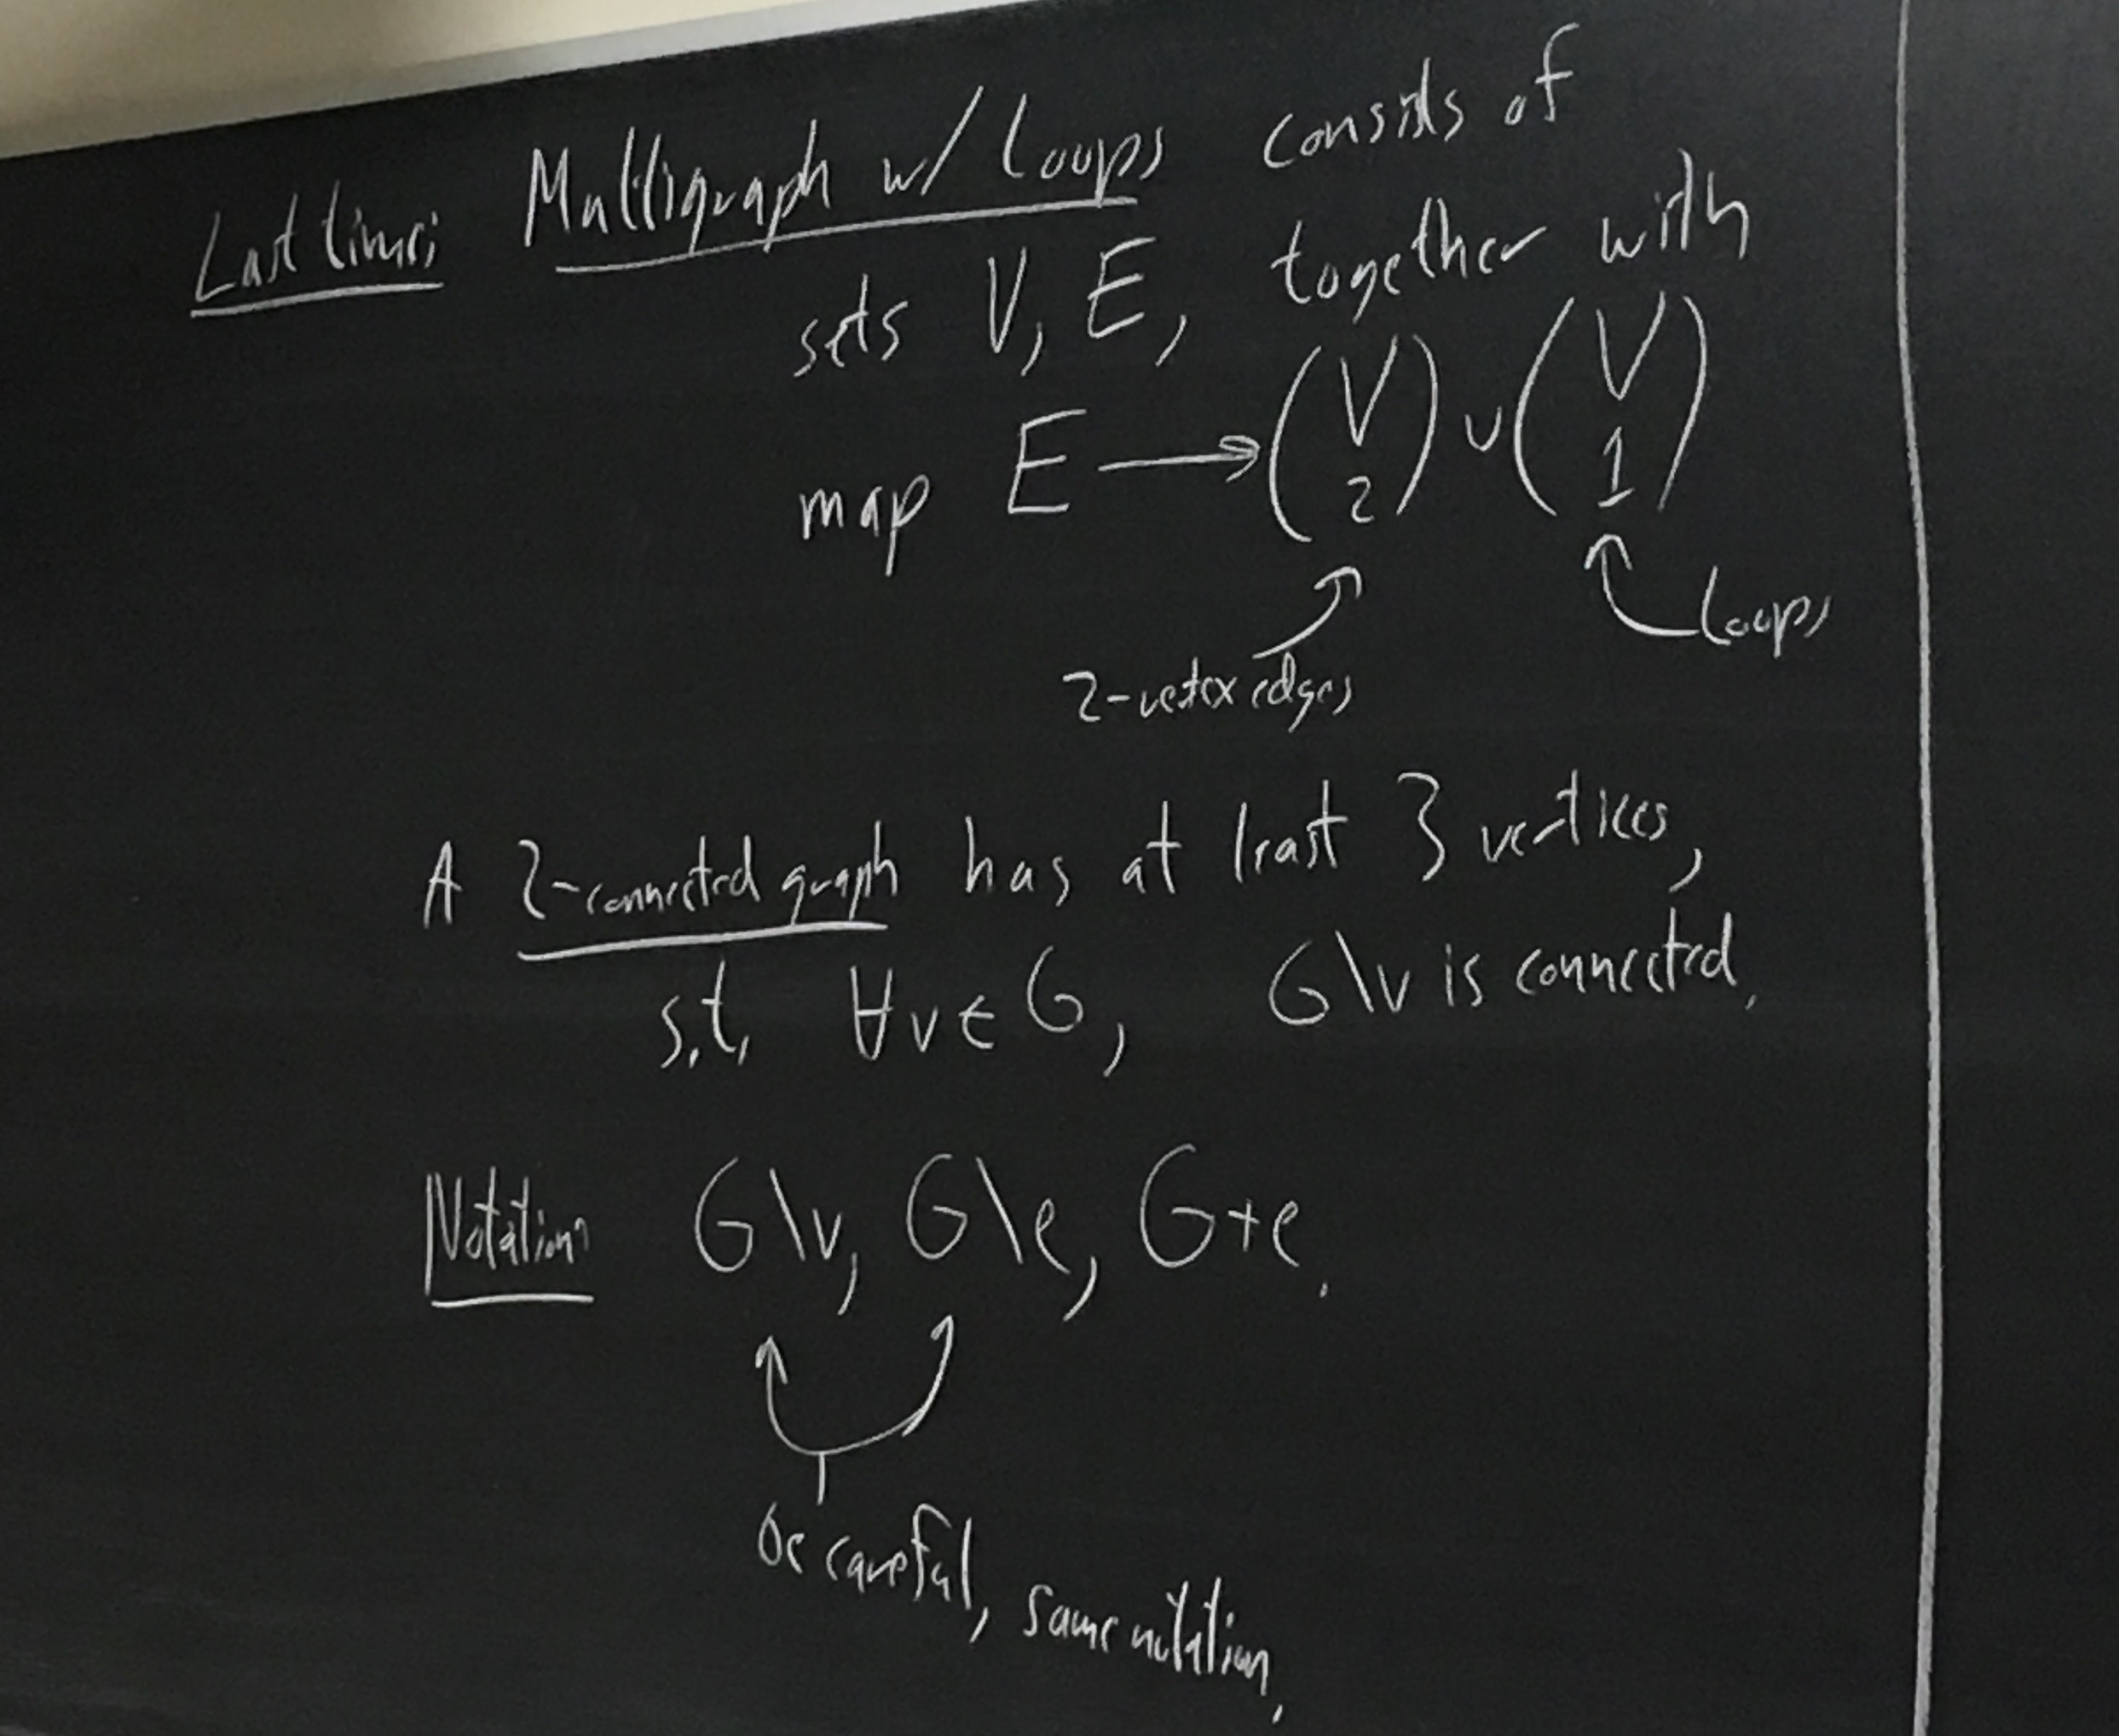 Last time: Multigraph w/ Loops consists of
sets V, E, together with
map E → (V 2) ∪ (V 1)
2-vertex edges
Loops
A 2-connected graph has at least 3 vertices,
s.t. ∀v∈G, G\v is connected.
Notation: G\v, G\e, G+e.
be careful, same notation.